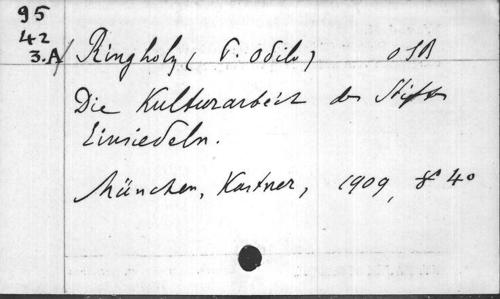 95
42
3.A
Ringholz ( P. Odilo ) OSB
Die Kulturarbeit des Stiftes
Einsiedeln.
München, Kastner, 1909, 8° 40